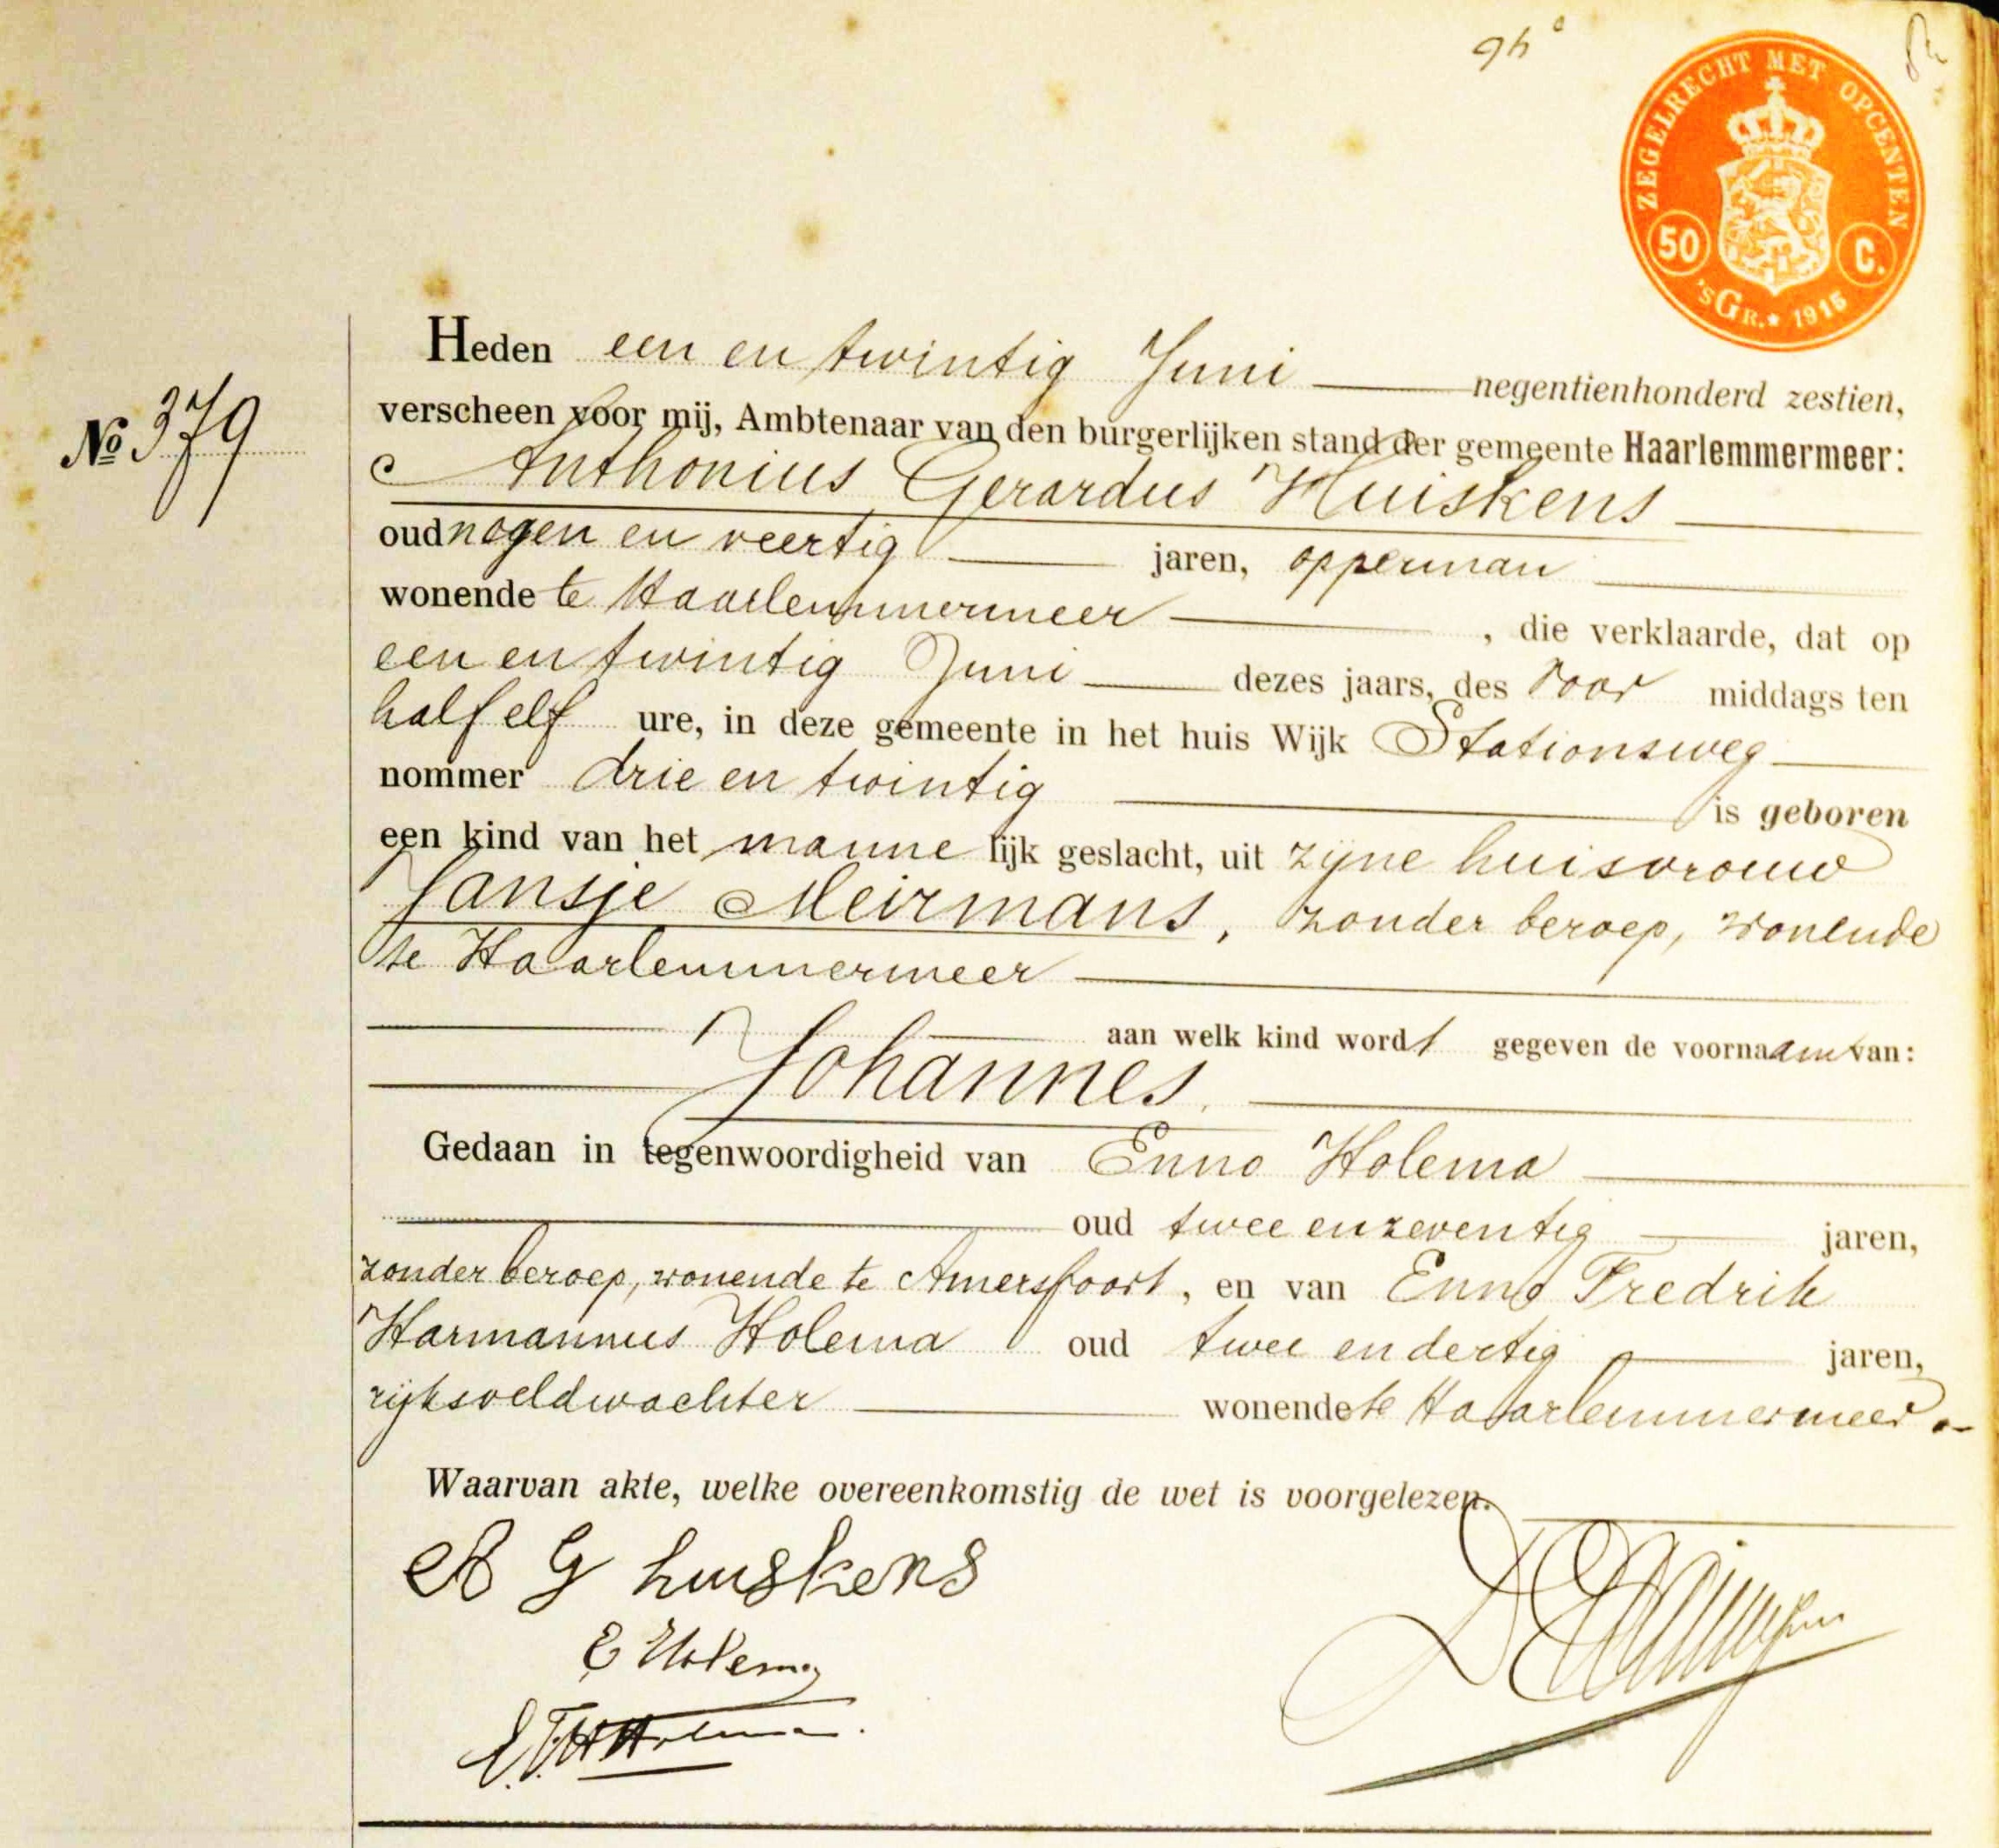 94c
ZEGELRECHT MET OPCENTEN
50 C.
'sGR.★ 1915
Heden een en twintig Juni negentienhonderd zestien,
No 379
verscheen voor mij, Ambtenaar van den burgerlijken stand der gemeente Haarlemmermeer:
Anthonius Gerardus Huiskens
oud negen en veertig jaren, opperman
wonende te Haarlemmermeer, die verklaarde, dat op
een en twintig Juni dezes jaars, des voor middags ten
half elf ure, in deze gemeente in het huis Wijk Stationsweg
nommer drie en twintig is geboren
een kind van het manne lijk geslacht, uit zijne huisvrouw
Jansje Meirmans, zonder beroep, wonende
te Haarlemmermeer
aan welk kind wordt gegeven de voornaam van:
Johannes.
Gedaan in tegenwoordigheid van Enno Holema
oud twee en zeventig jaren,
zonder beroep, wonende te Amersfoort, en van Enno Fredrik
Harmannus Holema oud twee en dertig jaren,
rijksveldwachter wonende te Haarlemmermeer.
Waarvan akte, welke overeenkomstig de wet is voorgelezen.
A G huiskens
E Holema
E.F.H Holema.